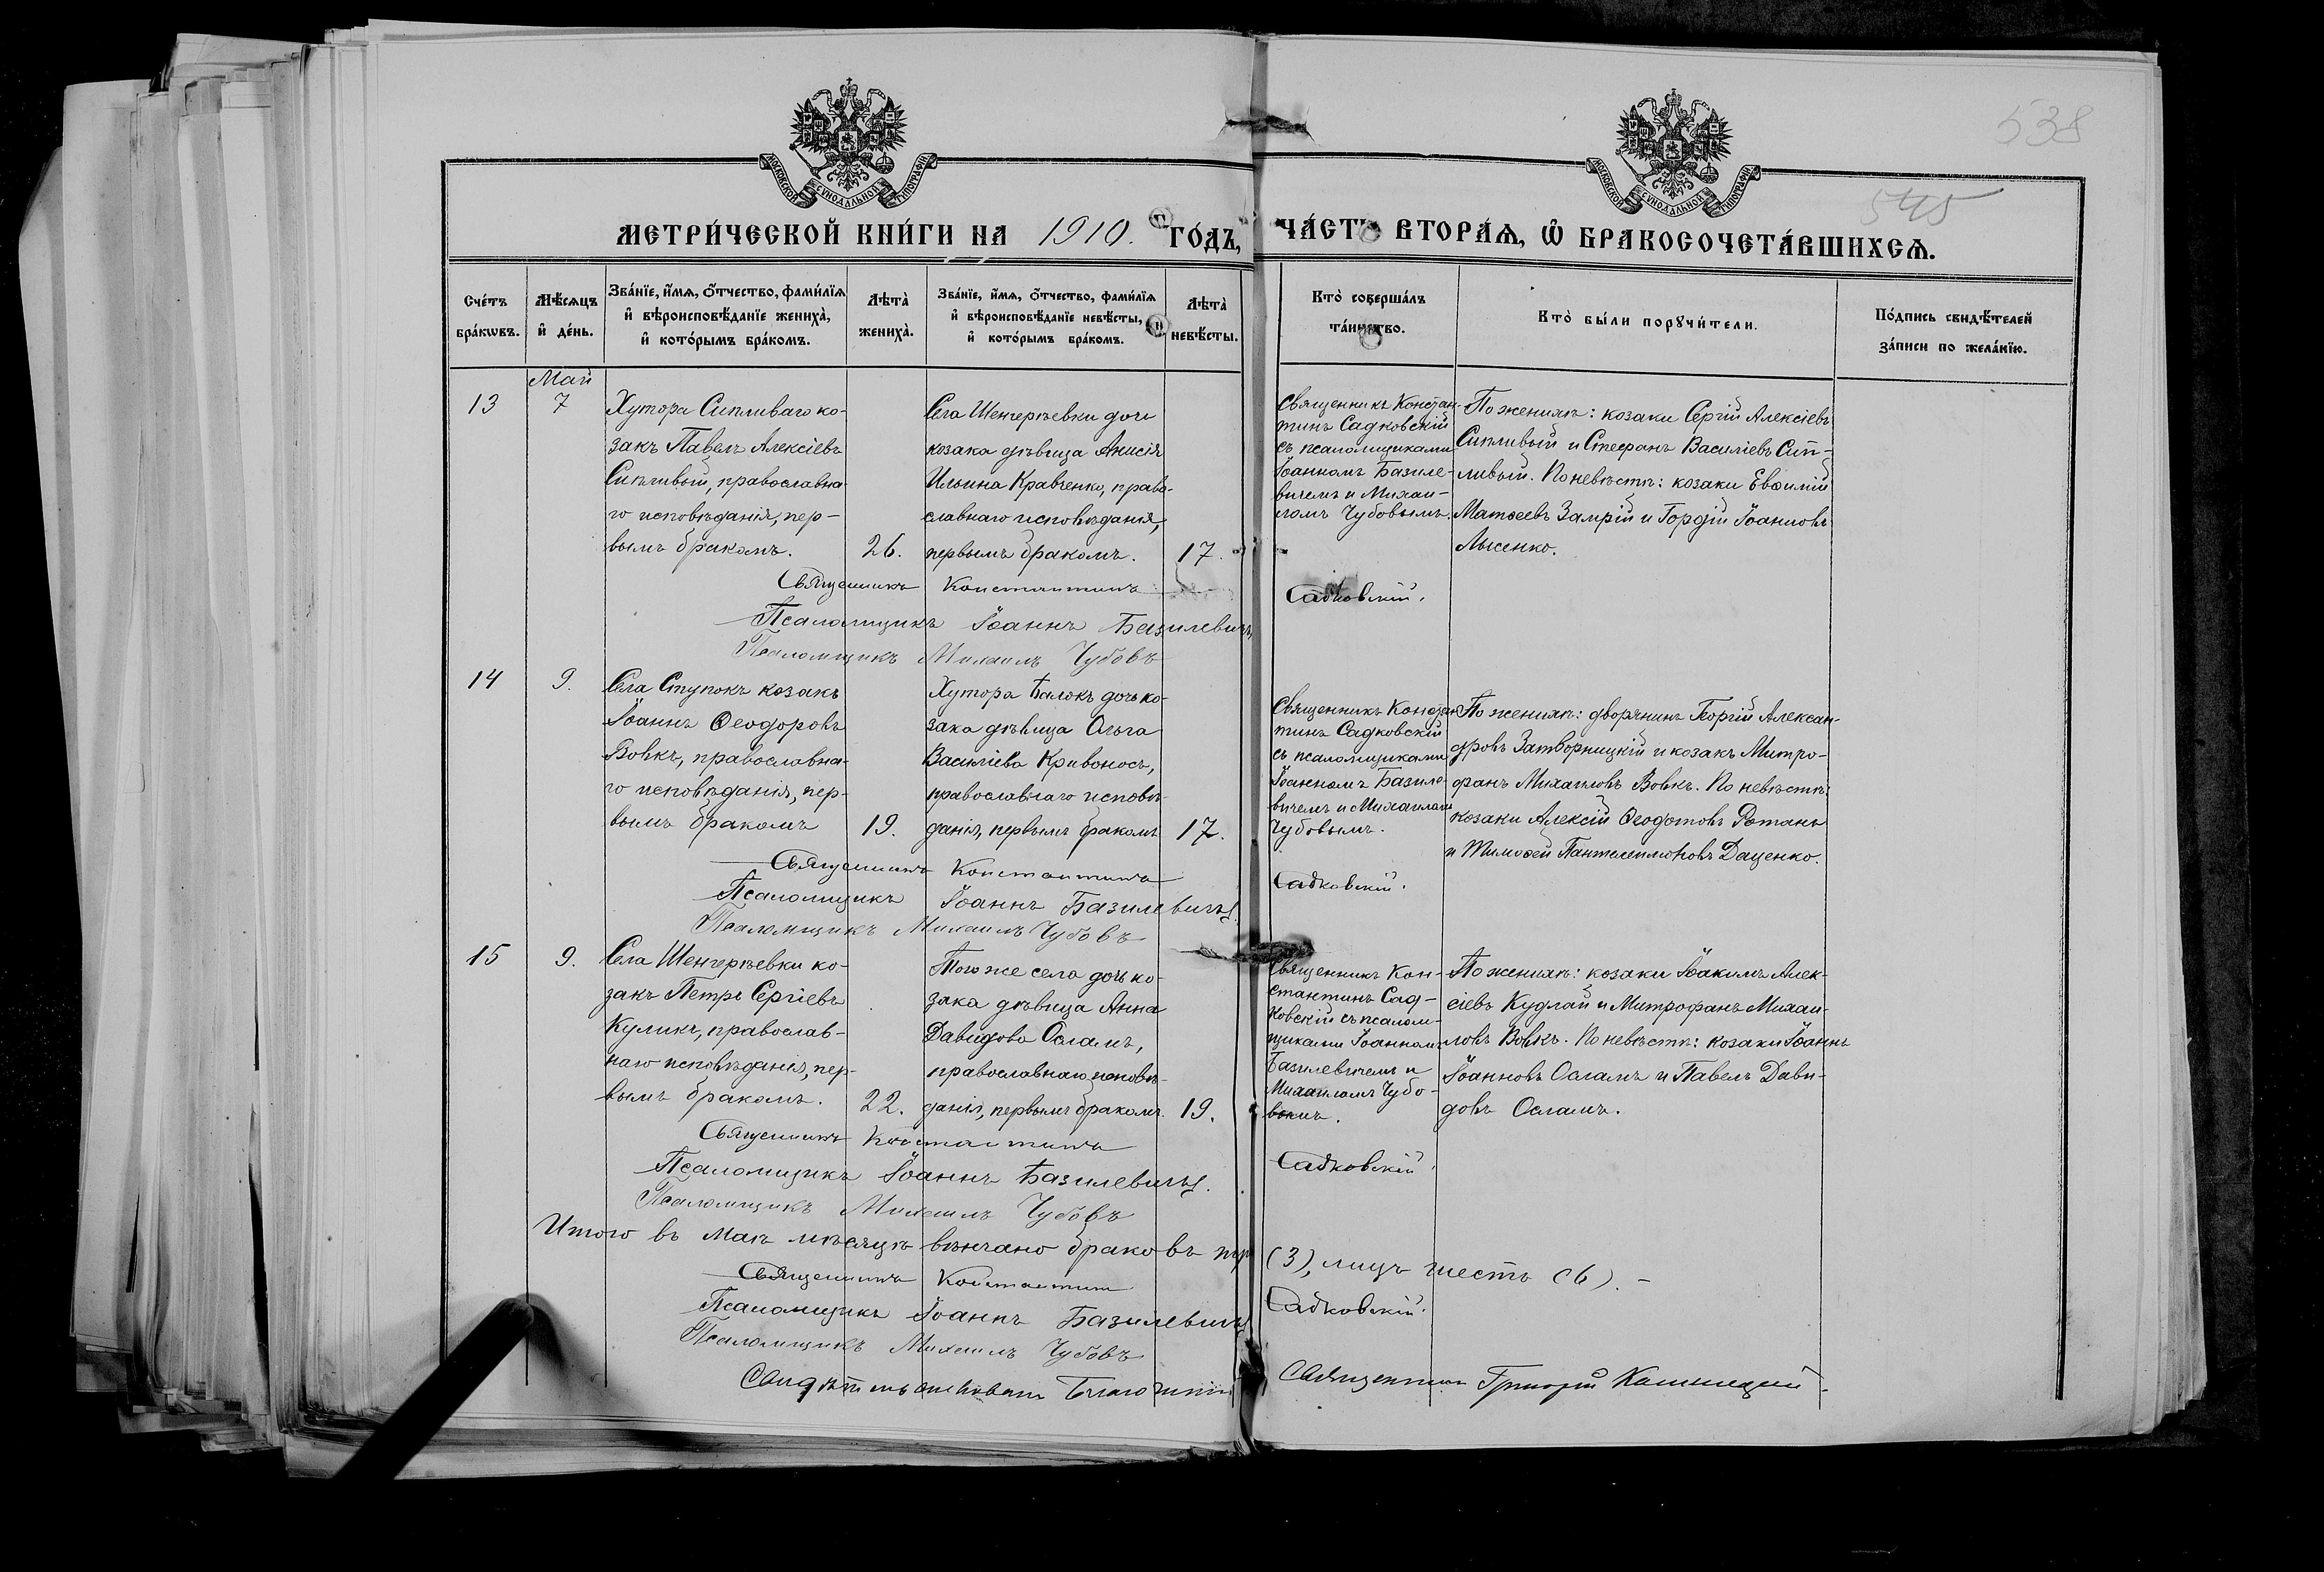 538
545
МОСКОВСКОЙ СѴНОДАЛЬНОЙ ТИПОГРАФІИ
МОСКОВСКОЙ СѴНОДАЛЬНОЙ ТИПОГРАФІИ
МЕТРИ́ЧЕСКОЙ КНИ́ГИ НА 1910. ГО́ДЪ, ЧА́СТЬ ВТОРА́Ѧ, Ѽ БРАКОСОЧЕТА́ВШИХСѦ.
Сче́тъ бра́кѡвъ.
Мѣ́сѧцъ и҆ де́нь.
Зва́нїе, и҆́мѧ, ѻ҆́тчество, фами́лїѧ
и҆ вѣроисповѣ́данїе жениха̀,
и҆ кото́рымъ бра́комъ.
Лѣта̀ жениха̀.
Зва́нїе, и҆́мѧ, ѻ҆́тчество, фами́лїѧ
и҆ вѣроисповѣ́данїе невѣ́сты,
и҆ кото́рымъ бра́комъ.
Лѣта̀ невѣ́сты.
Кто̀ соверша́лъ
та́инство.
Кто̀ бы́ли порꙋчи́тели.
По́дпись свидѣ́телей
за́писи по жела́нїю.
Май
13
7
Хутора Сипливаго ко-
закъ Павелъ Алексіевъ
Сипливый, православна-
го исповѣданія, пер-
вымъ бракомъ.
26.
Села Шенгерѣевки дочь
козака дѣвица Анисія
Ильина Кравченко, право-
славнаго исповѣданія,
первымъ бракомъ.
17.
Священникъ Констан-
тинъ Садковскій
съ псаломщиками
Іоанномъ Базиле-
вичемъ и Михаи-
ломъ Чубовымъ.
По женихѣ: козаки Сергій Алексіевъ
Сипливый и Стефанъ Василіевъ Сип-
ливый. По невѣстѣ: козаки Евѳимій
Матѳеевъ Замрій и Гордій Іоанновъ
Лысенко.
Священникъ Константинъ Садковскій.
Псаломщикъ Іоаннъ Базилевичъ
Псаломщикъ Михаилъ Чубовъ
14
9.
Села Ступокъ козакъ
Іоаннъ Ѳеодоровъ
Вовкъ, православна-
го исповѣданія, пер-
вымъ бракомъ
19.
Хутора Балокъ дочь ко-
зака дѣвица Ольга
Василіева Кривоносъ,
православнаго исповѣ-
данія, первымъ бракомъ
17.
Священникъ Констан-
тинъ Садковскій
съ псаломщиками
Іоанномъ Базиле-
вичемъ и Михаиломъ
Чубовымъ.
По женихѣ: дворянинъ Георгій Алексан-
дровъ Затворницкій и козакъ Митро-
фанъ Михаиловъ Вовкъ. По невѣстѣ:
козаки Алексій Ѳеодотовъ Ротань
и Тимоѳей Пантелеимоновъ Даценко.
Священникъ Константинъ Садковскій.
Псаломщикъ Іоаннъ Базилевичъ.
Псаломщикъ Михаилъ Чубовъ
15
9.
Села Шенгерѣевки ко-
закъ Петръ Сергіевъ
Куликъ, православ-
наго исповѣданія, пер-
вымъ бракомъ.
22.
Того же села дочь ко-
зака дѣвица Анна
Давидова Осламъ,
православнаго исповѣ-
данія, первымъ бракомъ.
19.
Священникъ Кон-
стантинъ Сад-
ковскій съ псалом-
щиками Іоанномъ
Базилевичемъ и
Михаиломъ Чубо-
вымъ.
По женихѣ: козаки Іоакимъ Алек-
сіевъ Кудлай и Митрофанъ Михаи-
ловъ Вовкъ. По невѣстѣ: козаки Іоаннъ
Іоанновъ Осламъ и Павелъ Дави-
довъ Осламъ.
Священникъ Константинъ Садковскій.
Псаломщикъ Іоаннъ Базилевичъ.
Псаломщикъ Михаилъ Чубовъ
Итого въ Маѣ мѣсяцѣ вѣнчано браковъ три (3), лицъ шесть (6). –
Священникъ Константинъ Садковскій.
Псаломщикъ Іоаннъ Базилевичъ
Псаломщикъ Михаилъ Чубовъ
Священникъ Григорій